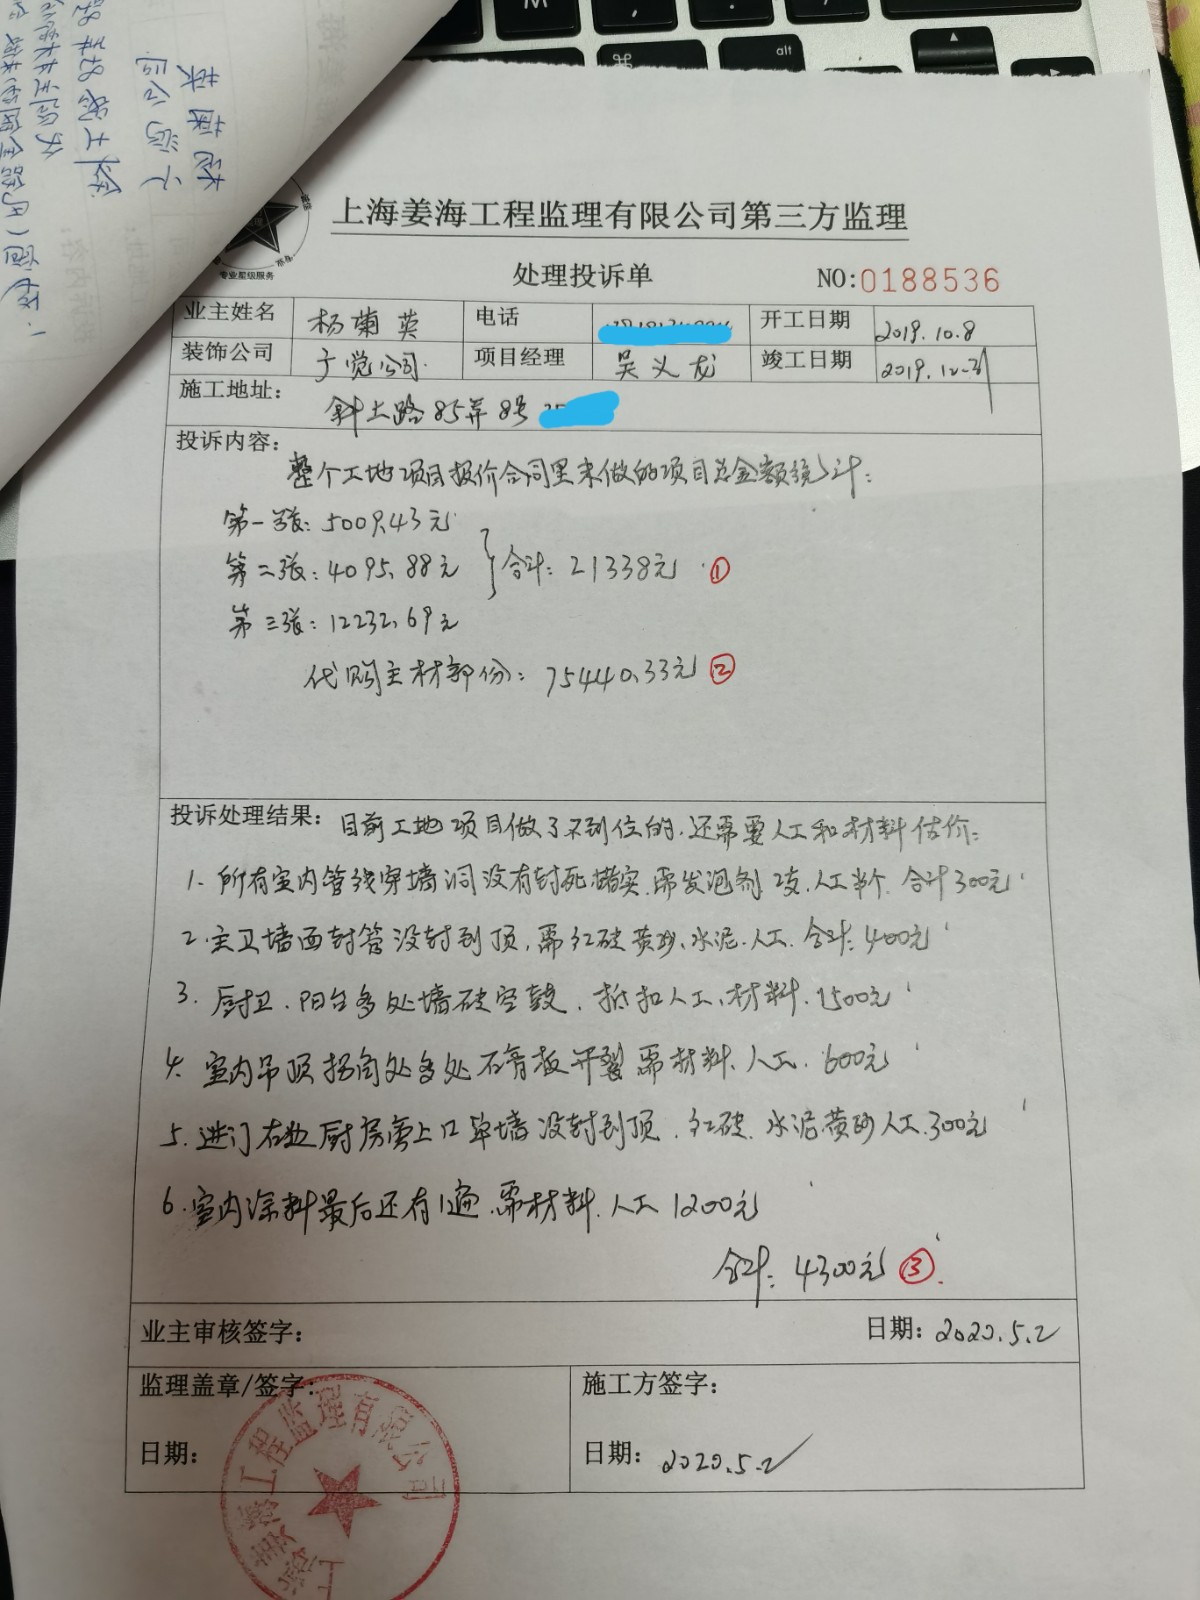 上海姜海工程监理有限公司第三方监理
专业星级服务
处理投诉单 NO:0188536
业主姓名 杨菊英 电话 开工日期 2019.10.8
装饰公司 于觉公司. 项目经理 吴义龙 竣工日期 2019.12.31
施工地址: 斜土路85弄8号
投诉内容:
整个工地项目报价合同里未做的项目总金额统计:
第一张: 5009.43元
第二张: 4095.88元 合计: 21338元 ①
第三张: 12232.69元
代购主材部份: 75440.33元 ②
投诉处理结果: 目前工地项目做了不到位的.还需要人工和材料估价:
1. 所有室内管线穿墙洞没有封死堵实.需发泡剂2支.人工半个.合计300元
2.主卫墙面封管没封到顶,需红砖黄沙、水泥.人工.合计:400元
3. 厨卫.阳台多处墙砖空鼓.抵扣人工、材料.1500元
4. 室内吊顶拐角处多处石膏板开裂需材料、人工.600元
5.进门右边厨房窗上口单墙没封到顶.红砖.水泥黄砂人工.300元
6.室内涂料最后还有1遍.需材料.人工1200元
合计: 4300元 ③.
业主审核签字: 日期: 2020.5.2
监理盖章/签字: 施工方签字:
日期: 日期: 2020.5.2
上海姜海工程监理有限公司